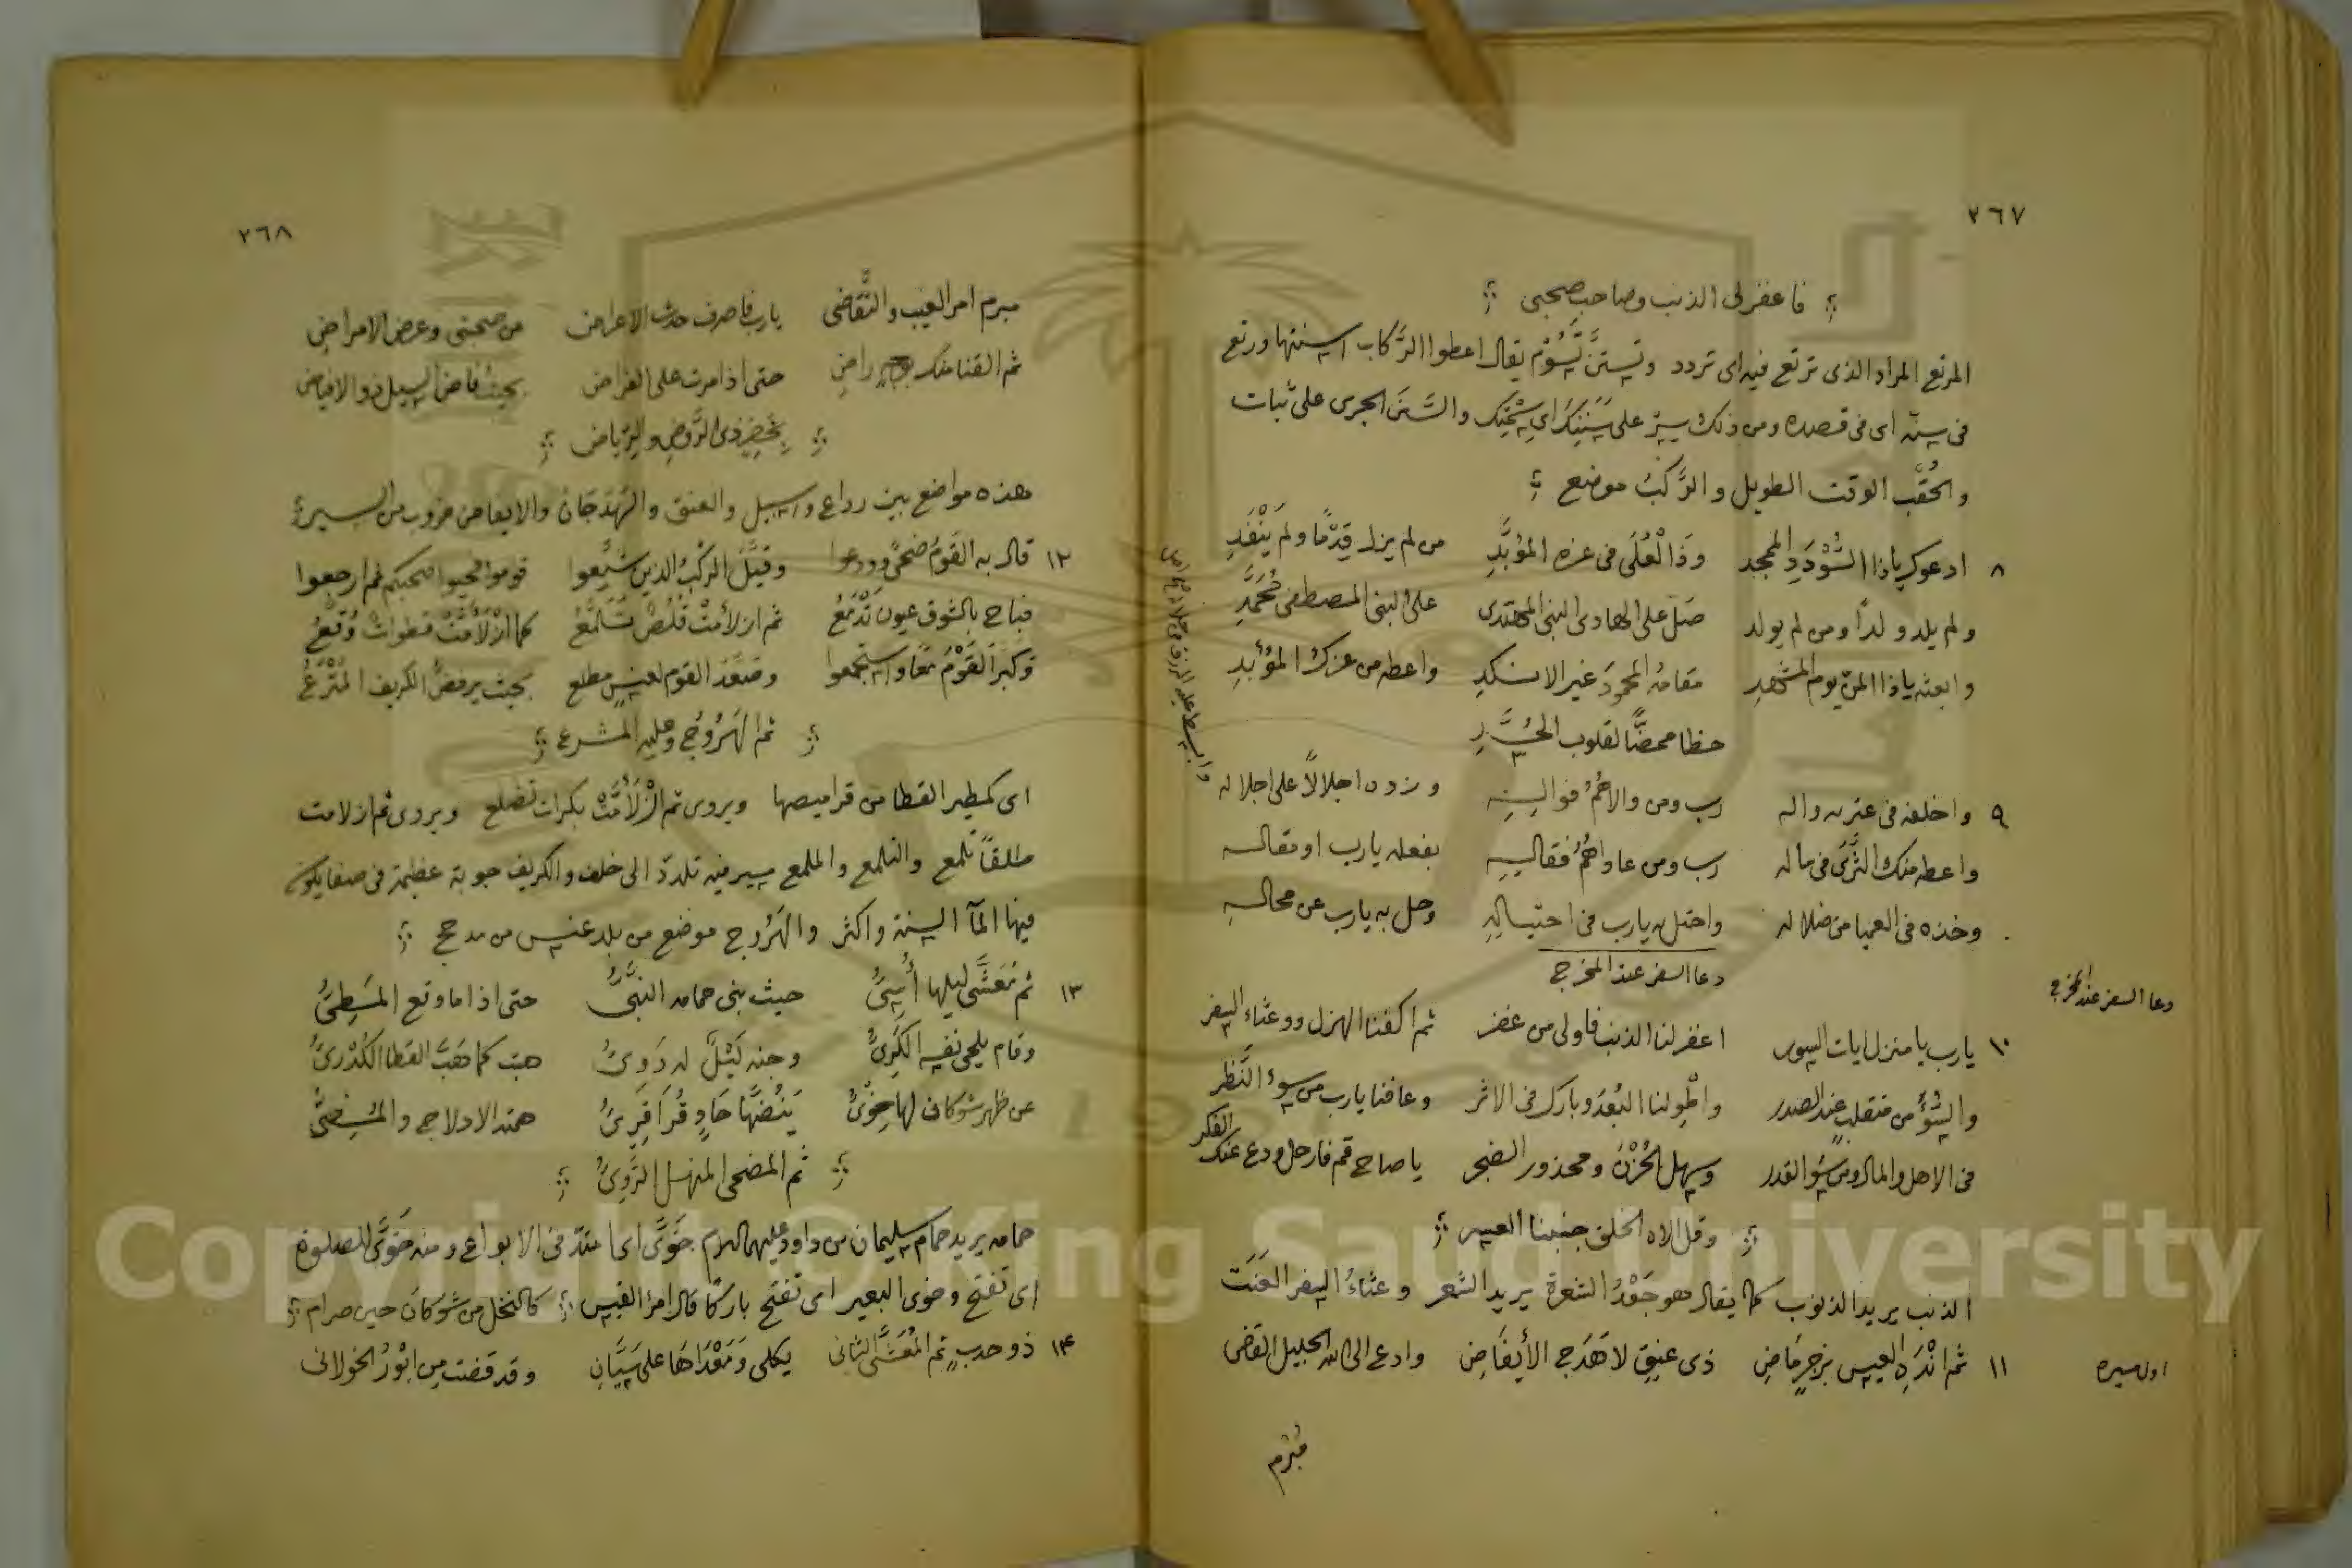 ٢٦٧
فاغفر لى الذنب وصاحب صحبى
المرتع المراد الذى ترتع فيه اى تردد وتستنّ تسُوم يقال اعطوا الرّكاب اسنتها ورتع
فى سنته اى فى قصده ومن ذلك سِرْ على سَنَنِكَ اى والسَّنَن الجرى على ثبات
والحُقُب الوقت الطويل والرَّكبُ موضع
٨ ادعوك ياذا السُّوْدَدِ الممجد وَذَا الْعُلَى فى عزه المُؤَبَّدِ من لم يزل قِدْمًا ولم يَنْفَدِ
ولم يلد ولدًا ومن لم يولد صَلّ على الهادى النبى المهتدى على النبى المصطفى مُحَمَّدِ
وابعثه ياذا المنّ يوم المشهد مقامه المحمودَ غير الانكد واعطه من عزك المُؤبدِ
حظا ممحضًا لقلوب الحُسَّدِ
٩ واخلفه فى عترته واله رب ومن والاهُمُ فواليه وزده اجلالاً على اجلاله
واعطه منك الثَّرَى فى ماله رب ومن عاداهُمُ فقاليه بفعله يارب او مقاله
وخذه فى العميا من ضلاله واحتل به يارب فى احتياله وحل به يارب عن محاله
دعا السفر عند المخرج
دعا السفر عند المخرج
١٠ يارب يا منزل ايات السور اغفر لنا الذنب فاولى من غفر ثم اكفنا الهزل ووعثاء السفر
والسُّوءَ من منقلب عند الصدر واطْوِ لنا البُعْدَ وبارك فى الاثر وعافنا يارب من سوء النَّظَر
فى الاهل والمال ومن سُوء القدر وسهل الحُزْنَ ومحذور الضجر يا صاح قم فارحل ودع عنك الفكر
وقل لاله الخلق جنبنا العسر
الذنب يريد الذنوب كما يقال هو جَعْدُ الشعرة يريد الشعر وعثاءُ السفر العَنَت
اول مسيره
١١ ثم انْدَهِ العيس بزجرٍ مَاضِ ذى عنقٍ لا هَدَجِ الأيفَاضِ وادع الى الله الجليل القاضى
مُبْرم
٢٦٨
مبرم امر الغيب والتَّقَاضى يارب فاصرف حدث الاعراض من صحبتى وعرض الامراض
ثم القنا منك راضِ حتى اذا مرت على الفراض بحيث فاض السيل ذو الافياض
ذى الرَّوض والرِّياض
هذه مواضع بين رداع واسبيل والعنق والهَدَجَان والايفاض ضروب من السير
١٢ قال به القَومُ ضحًى وودعوا وقيلَ الركبُ الذين شَيَّعوا قوموا فحيوا صحبكم ثم ارجعوا
فباح بالشوق عيون تَدْمَعُ ثم ازلأمّتْ قُلُصٌ تَلَمَّعُ كما ازْلأمَّتْ قطوات وُقَّعُ
وكبر القَوْمُ معًا واستجمعوا وصَعَّدَ القوم لعنسٍ مطلع بحيث يرفضّ الكريف المُتْرَعُ
ثم الهَرُوج وعليه المشرع
اى كمطير القطا من قراميصها ويروى ثم ازْلأمَّتْ بكرات تضلع ويروى ثم ازلامت
طلقًا تلمع والتلمع والملمع سير فيه تلدد الى خلف والكريف جوبة عظيمة فى صفا يكون
فيها المآ السنة واكثر والهَرُوج موضع من بلد عنس من مذحج
١٣ ثم مُعَشَّى ليلها أُسِىُّ حيث بنى حمامه النبىُّ حتى اذا ما وقع المَطِىُّ
وقام يلحى نفسه الكَرِىُّ وجنه لَيْلٌ له دَوِىُّ هبّت كما هَبَّ القطا الكُدْرِىُّ
عن ظهر شوكان لها خِوِىُّ يَنُضُّها حَادٍ قُرَاقِرِىُّ همته الادلاج والمُضِىُّ
ثم المضحى المنهل الرَّوِىُّ
حمامه يريد حمام سليمان بن داود عليهما السلام خَوَّى اى امتد فى الابواع ومنه خَوَّى للصلوة
اى تفتح وخوى البعير اى تفتح باركًا قال امرؤ القيس كالنخل من شوكانَ حين صرام
١٤ ذو حدبٍ ثم المُعَشَّى الثانى يكلى وَمَغْدَاهَا على سَيَّانِ وقد قضت من الخولانى